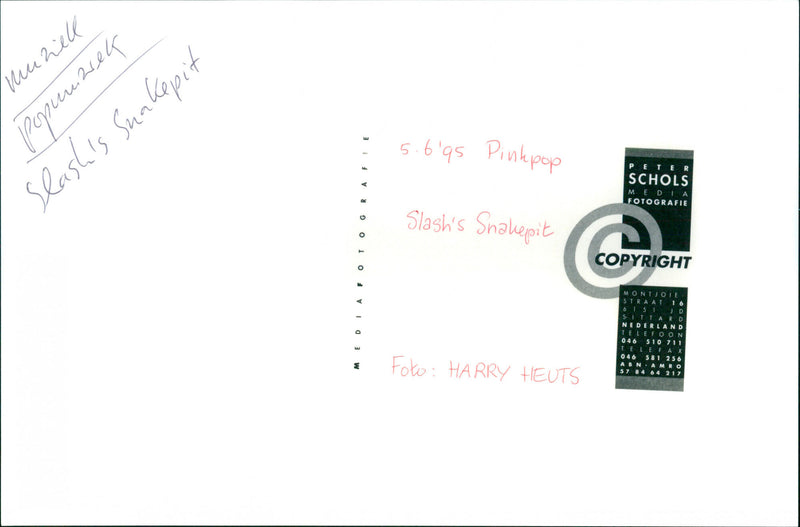 muziek
popmuziek
Slash's Snakepit
MEDIAFOTOGRAFIE
5.6'95 Pinkpop
Slash's Snakepit
Foto: HARRY HEUTS
PETER
SCHOLS
MEDIA
FOTOGRAFIE
©
COPYRIGHT
MONTJOIE-
STRAAT 16
6151 JD
SITTARD
NEDERLAND
TELEFOON
046 510 711
TELEFAX
046 581 256
ABN-AMRO
57 84 64 217